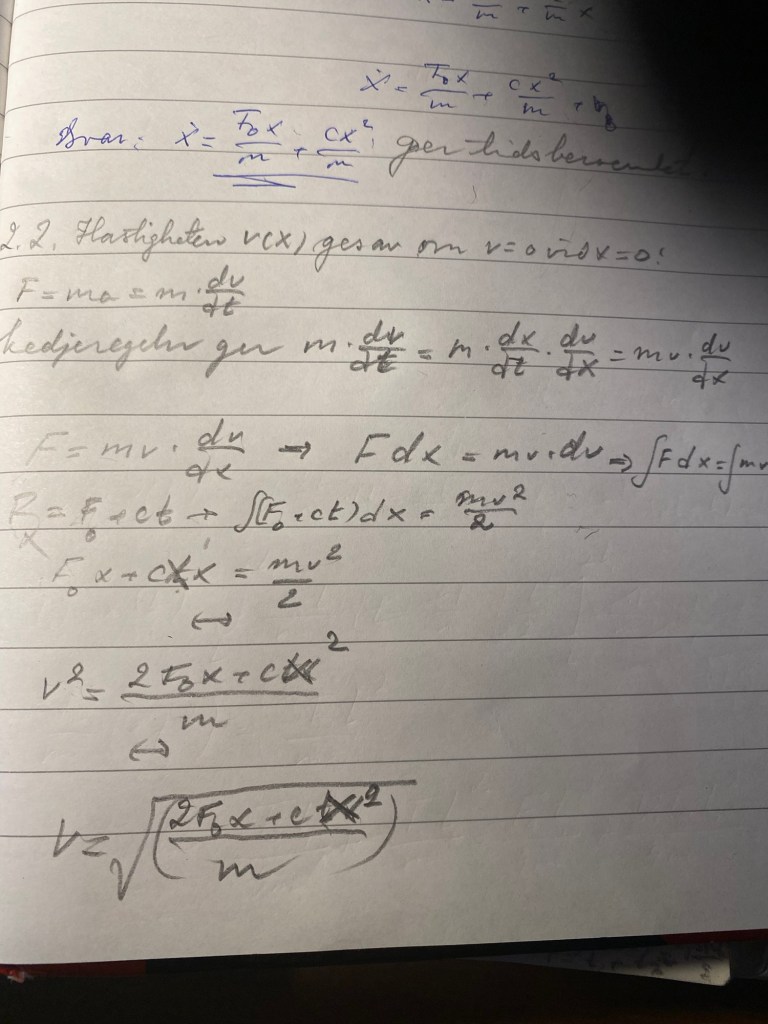 m + m x
ẋ = F₀x/m + cx²/m +
Svar: ẋ = F₀x/m + cx²/m ger tidsberoendet
2.2. Hastigheten v(x) ges av om v=0 vid x=0:
F = ma = m · dv/dt
kedjeregeln ger m · dv/dt = m · dx/dt · dv/dx = mv · dv/dx
F = mv · dv/dx → F dx = mv · dv ⇒ ∫F dx = ∫mv
Fₓ = F₀ + ct → ∫(F₀ + ct)dx = mv²/2
F₀x + ctx = mv²/2
↔
v² = 2F₀x + ctx²/m
↔
v = √(2F₀x + ctx²/m)